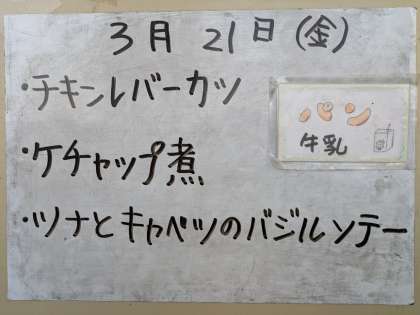 3月 21日 (金)
・チキンレバーカツ
パン
牛乳
・ケチャップ煮
・ツナとキャベツのバジルソテー